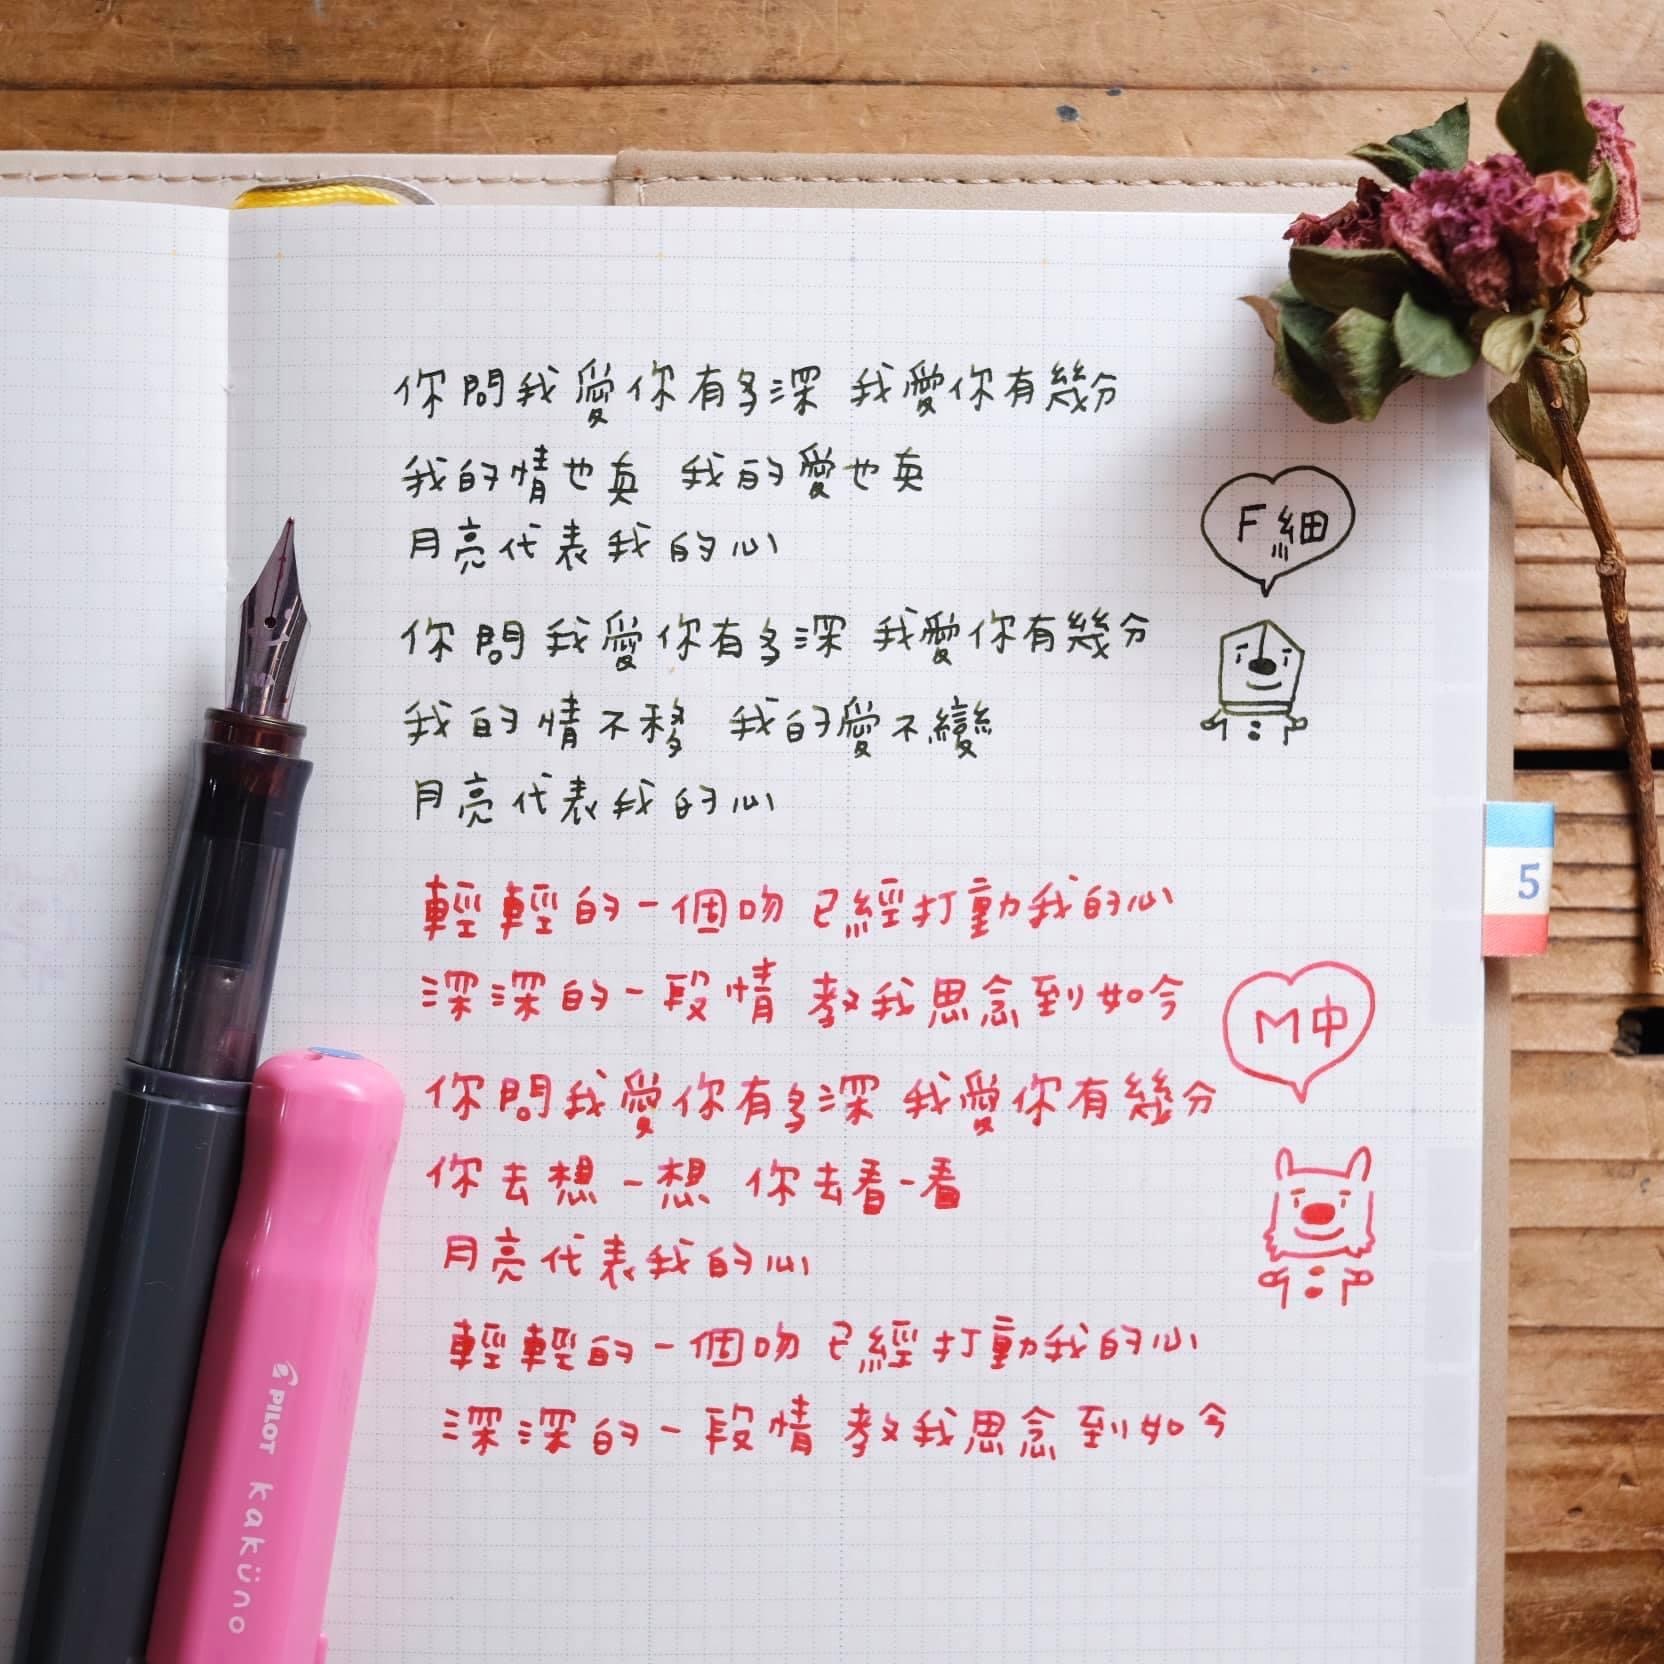 你問我愛你有多深 我愛你有幾分
我的情也真 我的愛也真
月亮代表我的心
F細
你問我愛你有多深 我愛你有幾分
我的情不移 我的愛不變
月亮代表我的心
5
輕輕的一個吻 已經打動我的心
深深的一段情 教我思念到如今
M中
你問我愛你有多深 我愛你有幾分
你去想一想 你去看一看
月亮代表我的心
輕輕的一個吻 已經打動我的心
深深的一段情 教我思念到如今
PILOT kaküno